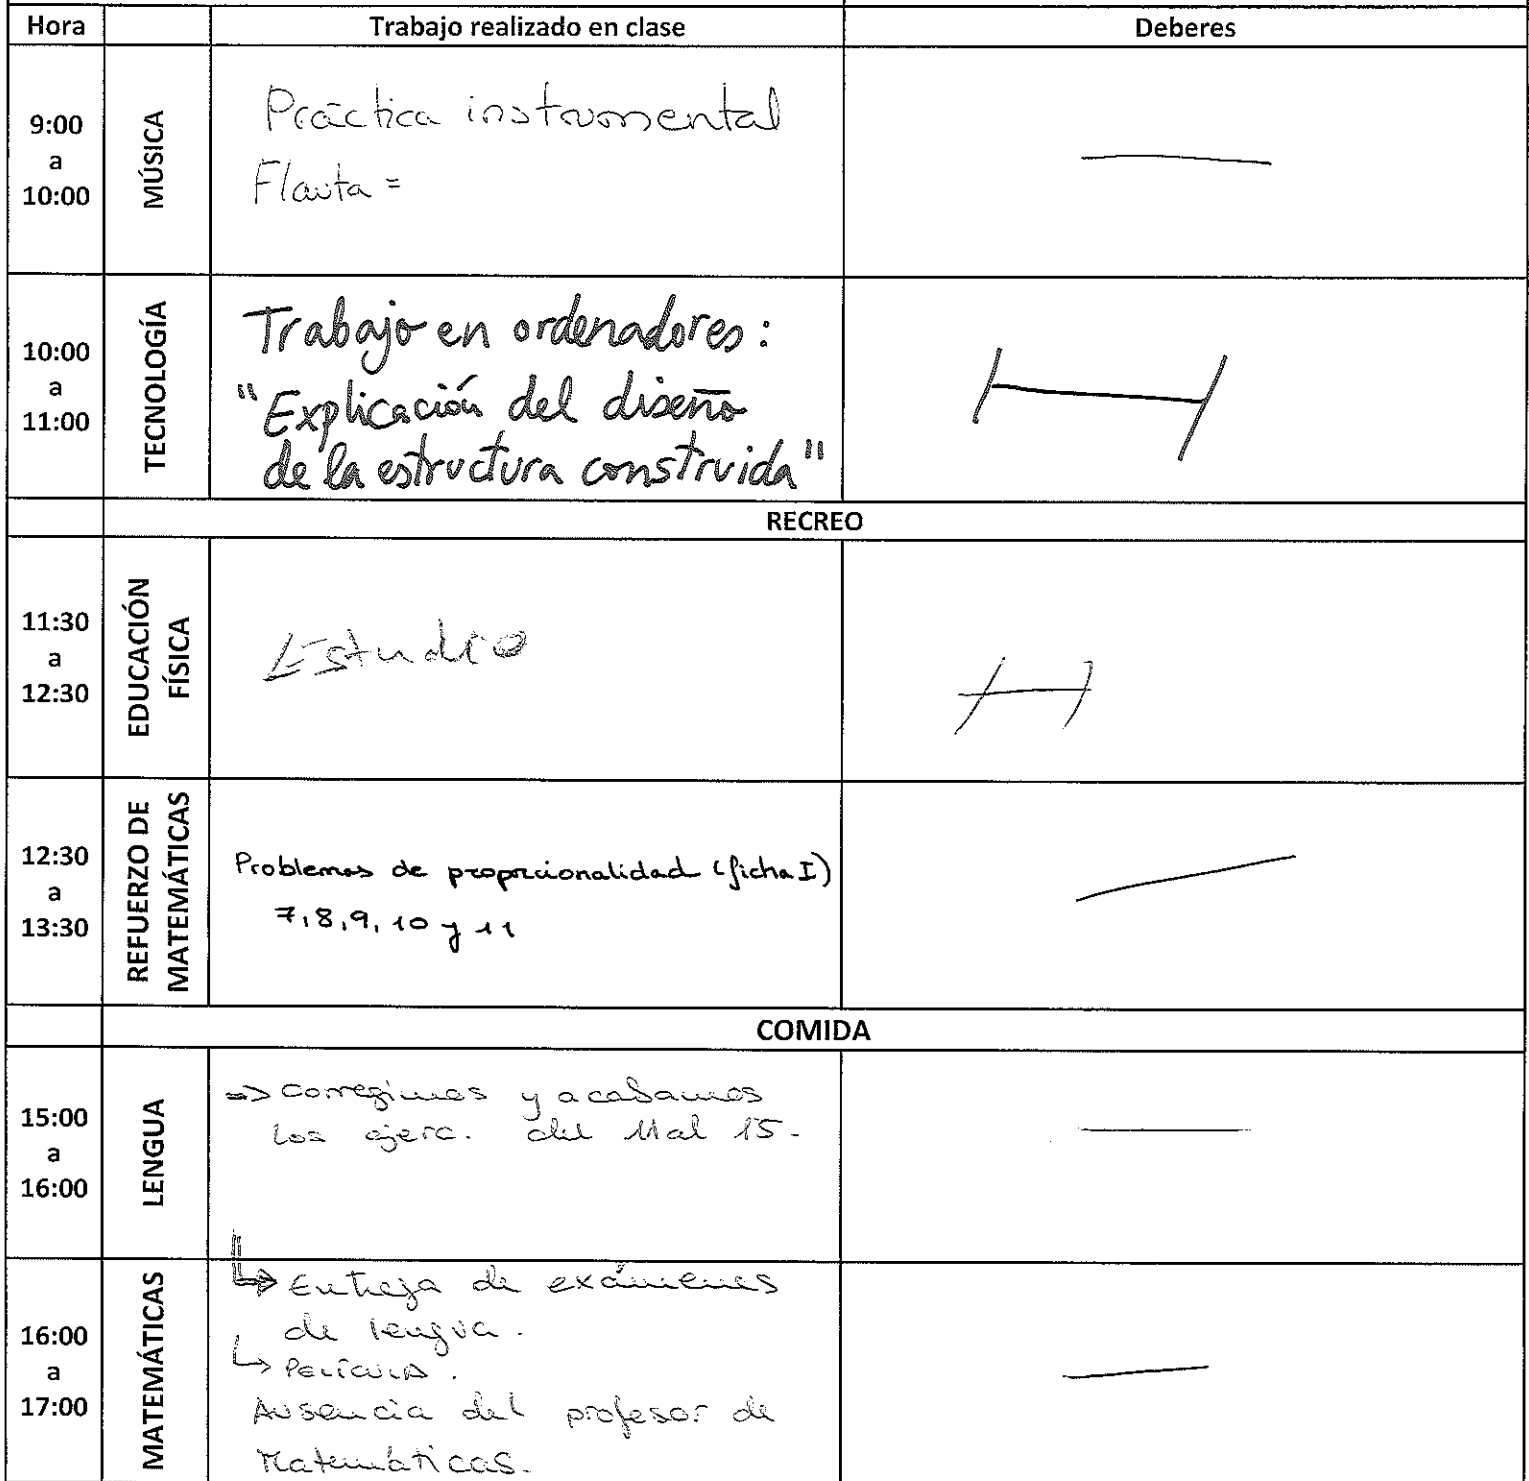 Hora Trabajo realizado en clase Deberes
9:00
a
10:00
MÚSICA
Práctica instrumental
Flauta =
10:00
a
11:00
TECNOLOGÍA
Trabajo en ordenadores :
"Explicación del diseño
de la estructura construida"
RECREO
11:30
a
12:30
EDUCACIÓN
FÍSICA
Estudio
12:30
a
13:30
REFUERZO DE
MATEMÁTICAS
Problemas de proporcionalidad (ficha I)
7, 8, 9, 10 y 11
COMIDA
15:00
a
16:00
LENGUA
=> Corregimos y acabamos
los ejerc. del 11 al 15.
16:00
a
17:00
MATEMÁTICAS
↳ Entrega de exámenes
de lengua.
↳ Película.
Ausencia del profesor de
Matemáticas.